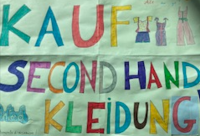 KAUF
SECOND HAND
KLEIDUNG!